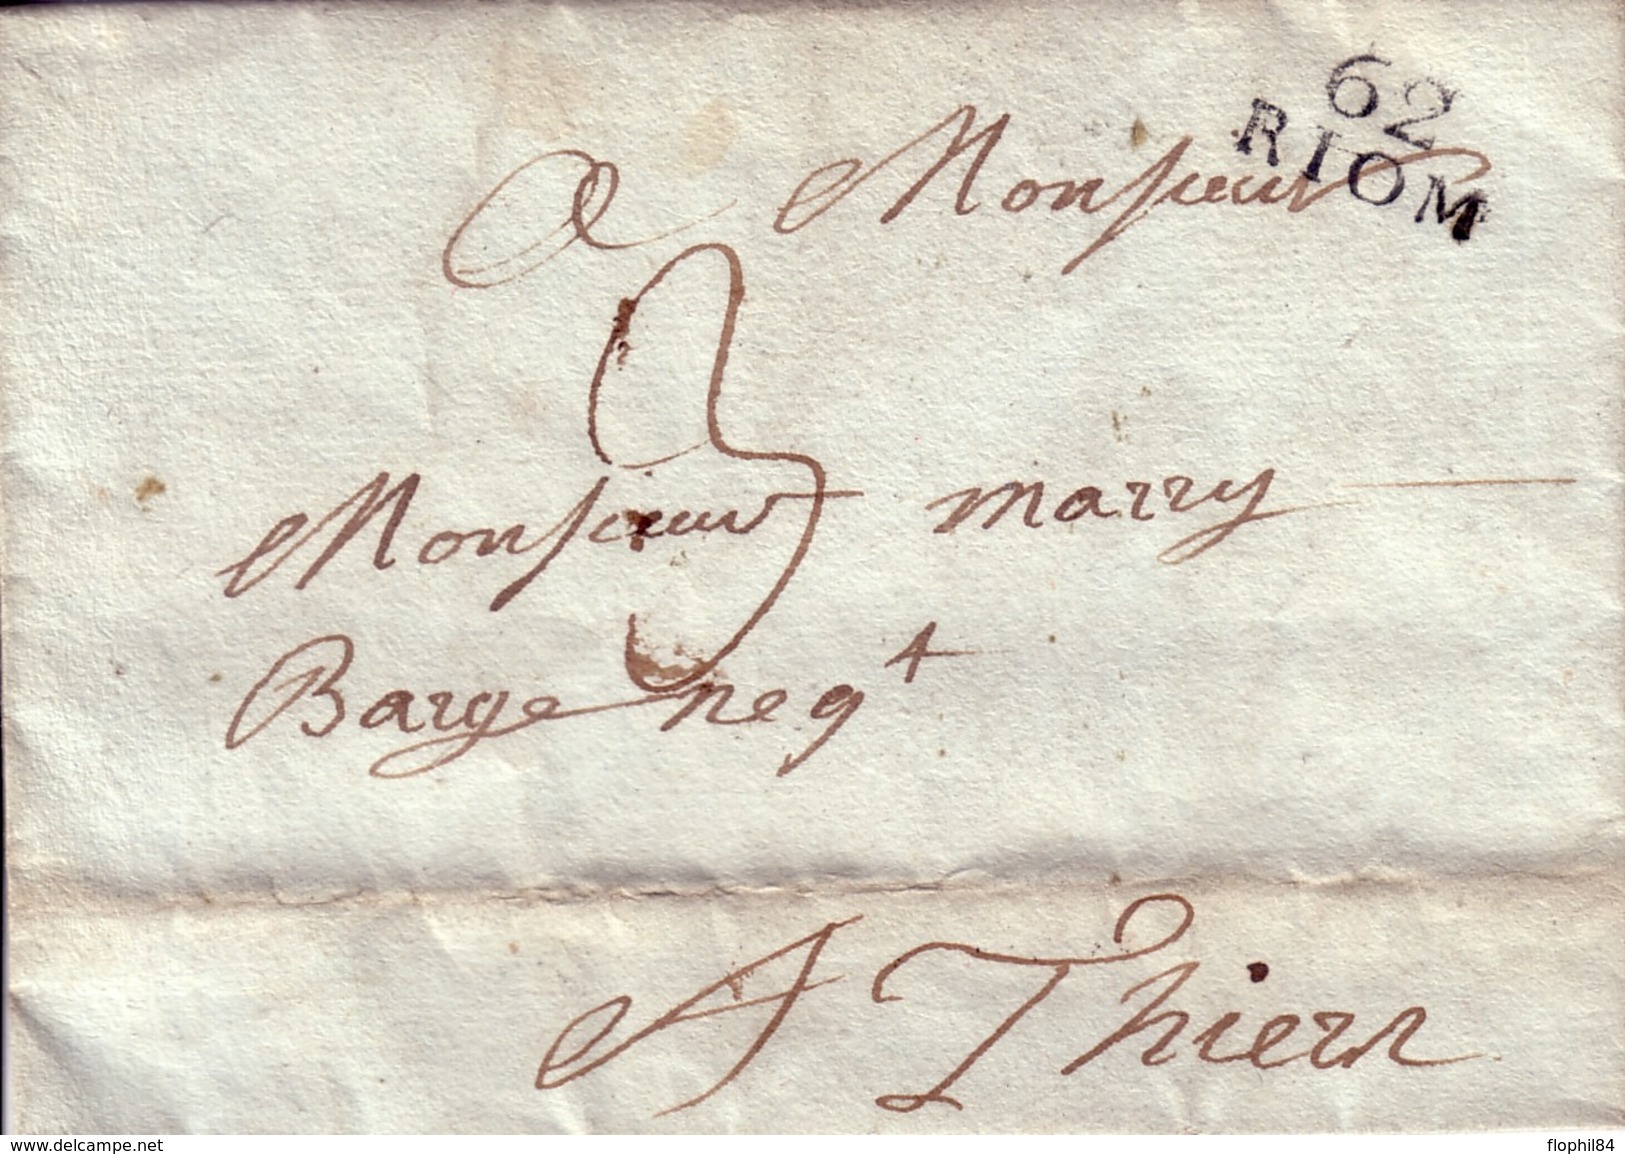 62
RIOM
a Monsieur
3
Monsieur marry
Barge negt
A Thiers
www.delcampe.net
flophil84